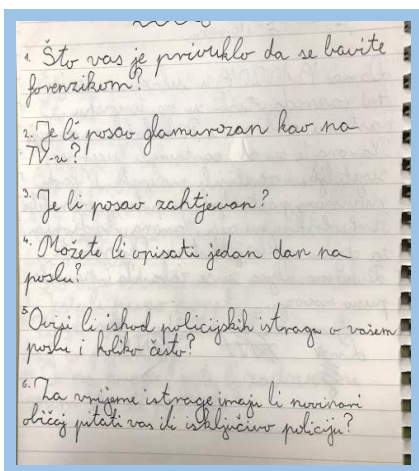 1. Što vas je privuklo da se bavite
forenzikom?
2. Je li posao glamurozan kao na
TV-u?
3. Je li posao zahtjevan?
4. Možete li opisati jedan dan na
poslu?
5. Ovisi li ishod policijskih istraga o vašem
poslu i koliko često?
6. Za vrijeme istrage imaju li novinari
običaj pitati vas ili isključivo policiju?